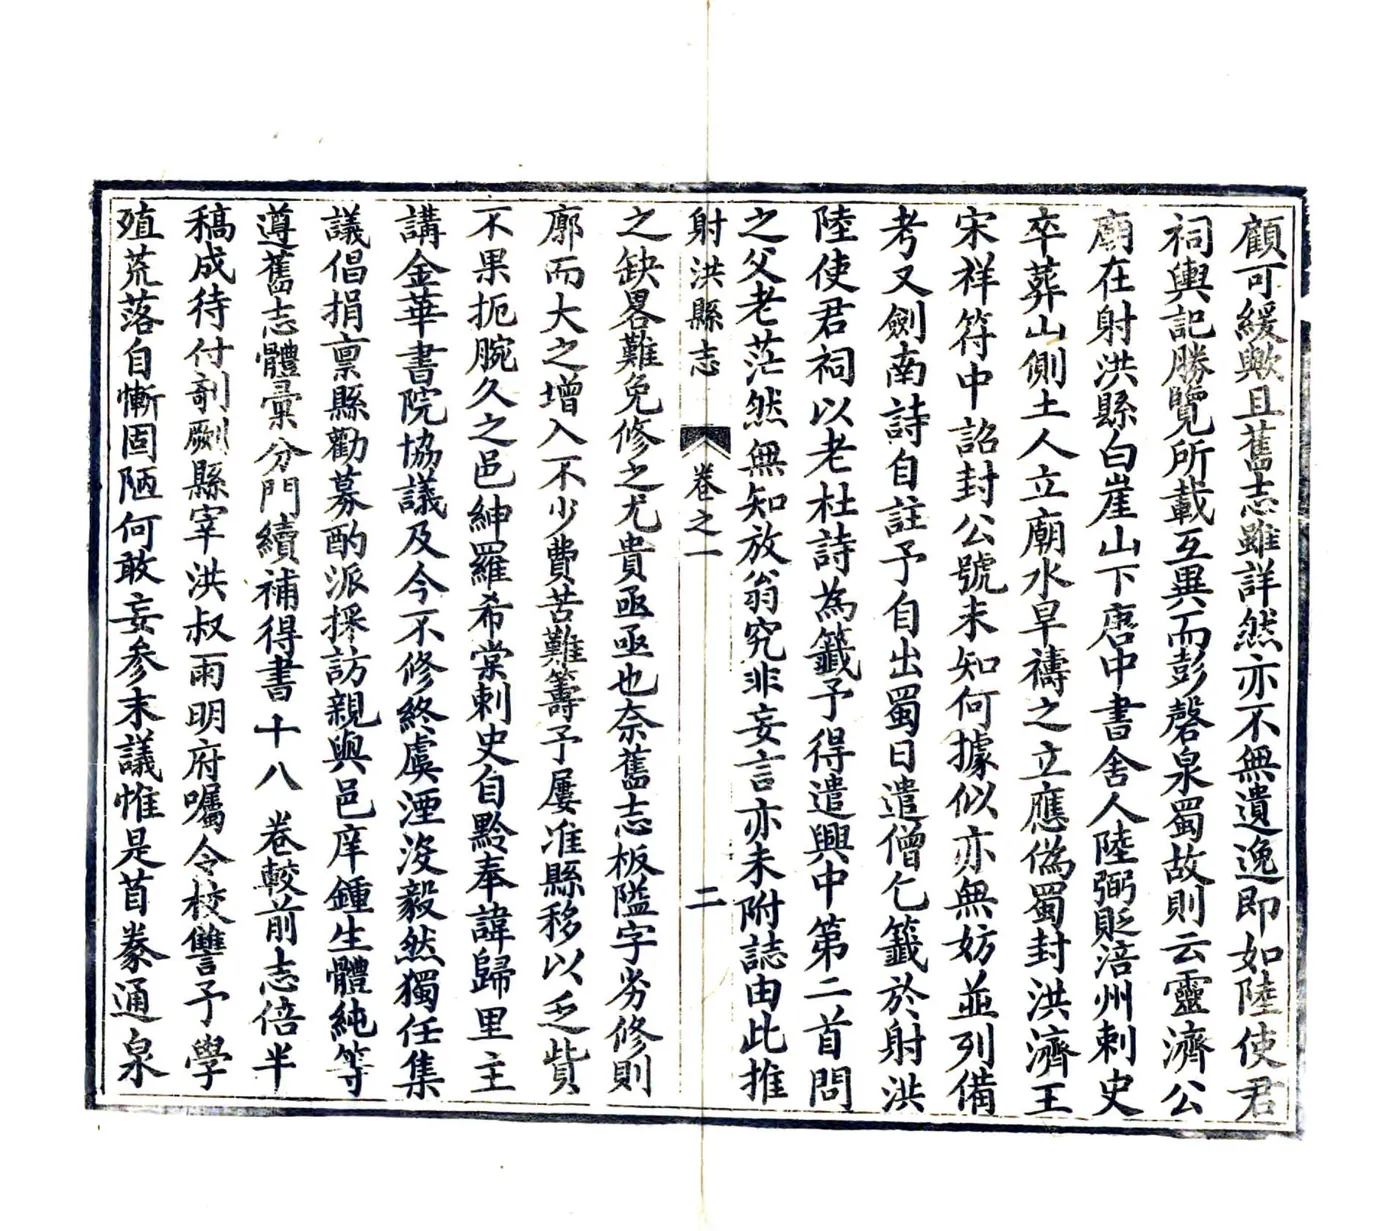 顧可緩歟且舊志雖詳然亦不無遺逸即如陸使君
祠輿記勝覽所載互異而彭磬泉蜀故則云靈濟公
廟在射洪縣白崖山下唐中書舍人陸弼貶涪州刺史
卒葬山側土人立廟水旱禱之立應偽蜀封洪濟王
宋祥符中詔封公號未知何據似亦無妨並列備
考又劍南詩自註予自出蜀日遣僧乞籤於射洪
陸使君祠以老杜詩為籤予得遣興中第二首問
之父老茫然無知放翁究非妄言亦未附誌由此推
射洪縣志 卷之一 二
之缺畧難免修之尤貴亟亟也奈舊志板隘字夯修則
廓而大之增入不少費苦難籌予屢准縣移以乏貲
不果扼腕久之邑紳羅希棠刺史自黔奉諱歸里主
講金華書院協議及今不修終虞湮沒毅然獨任集
議倡捐稟縣勸募酌派採訪親與邑庠鍾生體純等
遵舊志體彙分門續補得書十八卷較前志倍半
稿成待付剞劂縣宰洪叔雨明府囑令校讐予學
殖荒落自慚固陋何敢妄參末議惟是首豢通泉